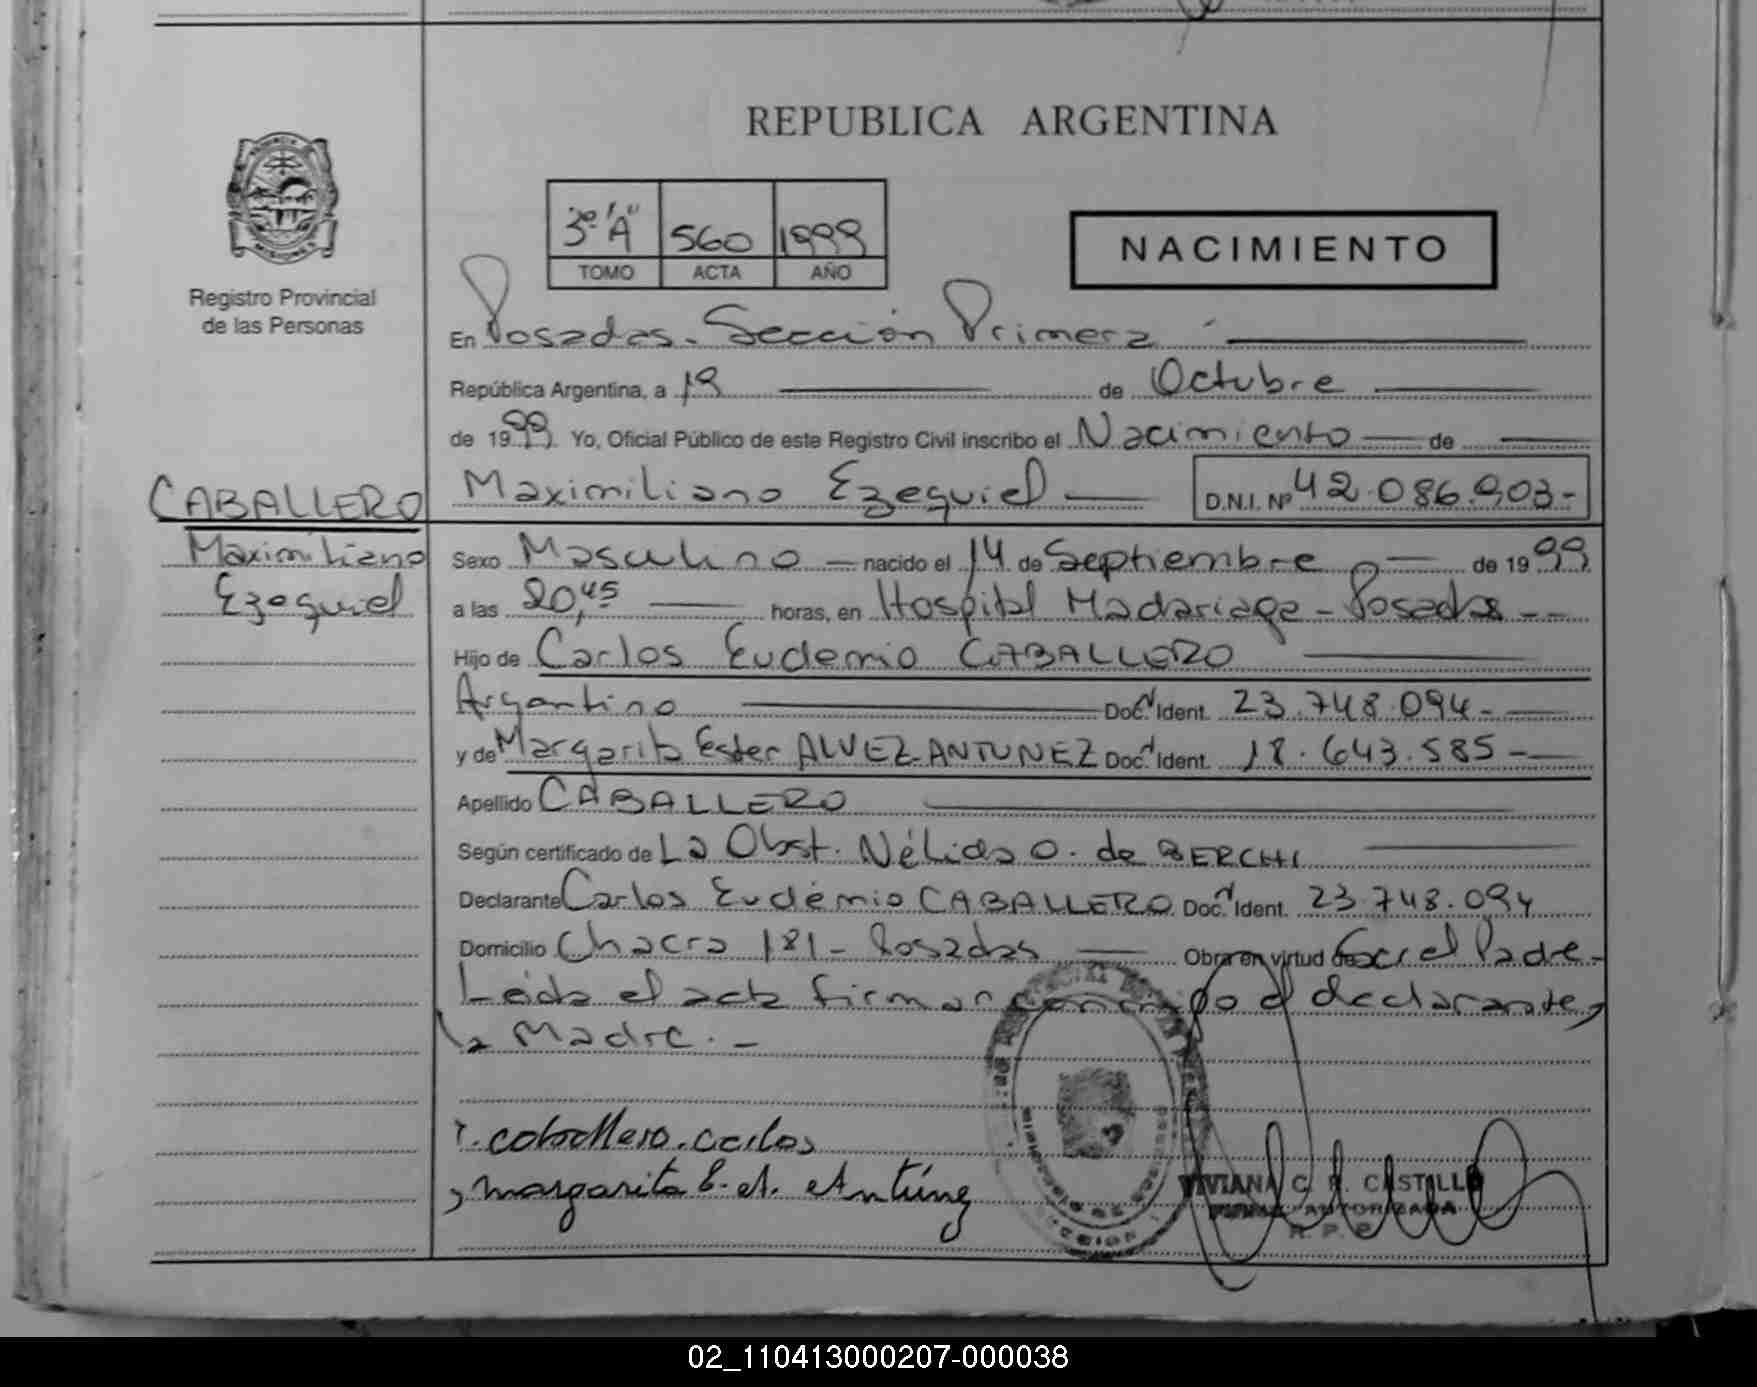 REPUBLICA ARGENTINA
3º "A" 560 1999
TOMO ACTA AÑO
NACIMIENTO
Registro Provincial
de las Personas
En Posadas. Sección Primera
República Argentina, a 19 de Octubre
de 1999. Yo, Oficial Público de este Registro Civil inscribo el Nacimiento de
Maximiliano Ezequiel D.N.I. Nº 42.086.903-
CABALLERO
Maximiliano
Ezequiel
Sexo Masculino nacido el 14 de Septiembre de 1999
a las 20,45 horas, en Hospital Madariaga - Posadas --
Hijo de Carlos Eudemio CABALLERO
Argentino Doc. Ident. 23.748.094-
y de Margarita Ester ALVEZ ANTUNEZ Doc. Ident. 18.643.585-
Apellido CABALLERO
Según certificado de La Obst. Nélida O. de BERCHI
Declarante Carlos Eudémio CABALLERO Doc. Ident. 23.748.094
Domicilio Chacra 181 - Posadas Obra en virtud de Ser el Padre-
Leida el acta firman conmigo el declarante,
la Madre. -
caballero.carlos
margarita E. A. Antúnez
VIVIANA C. R. CASTILLO
FIRMA AUTORIZADA
R. P. P.
02_110413000207-000038